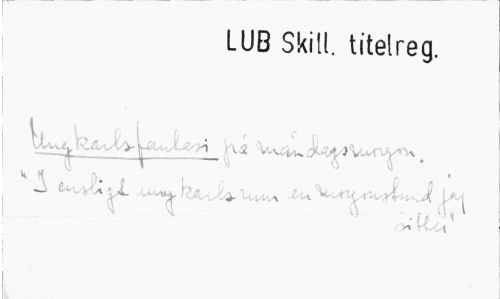 LUB Skill. titelreg.
Ungkarlsfantasi på måndagsmorgon.
"I ensligt ungkarlsrum en morgonstund jag
sitter"